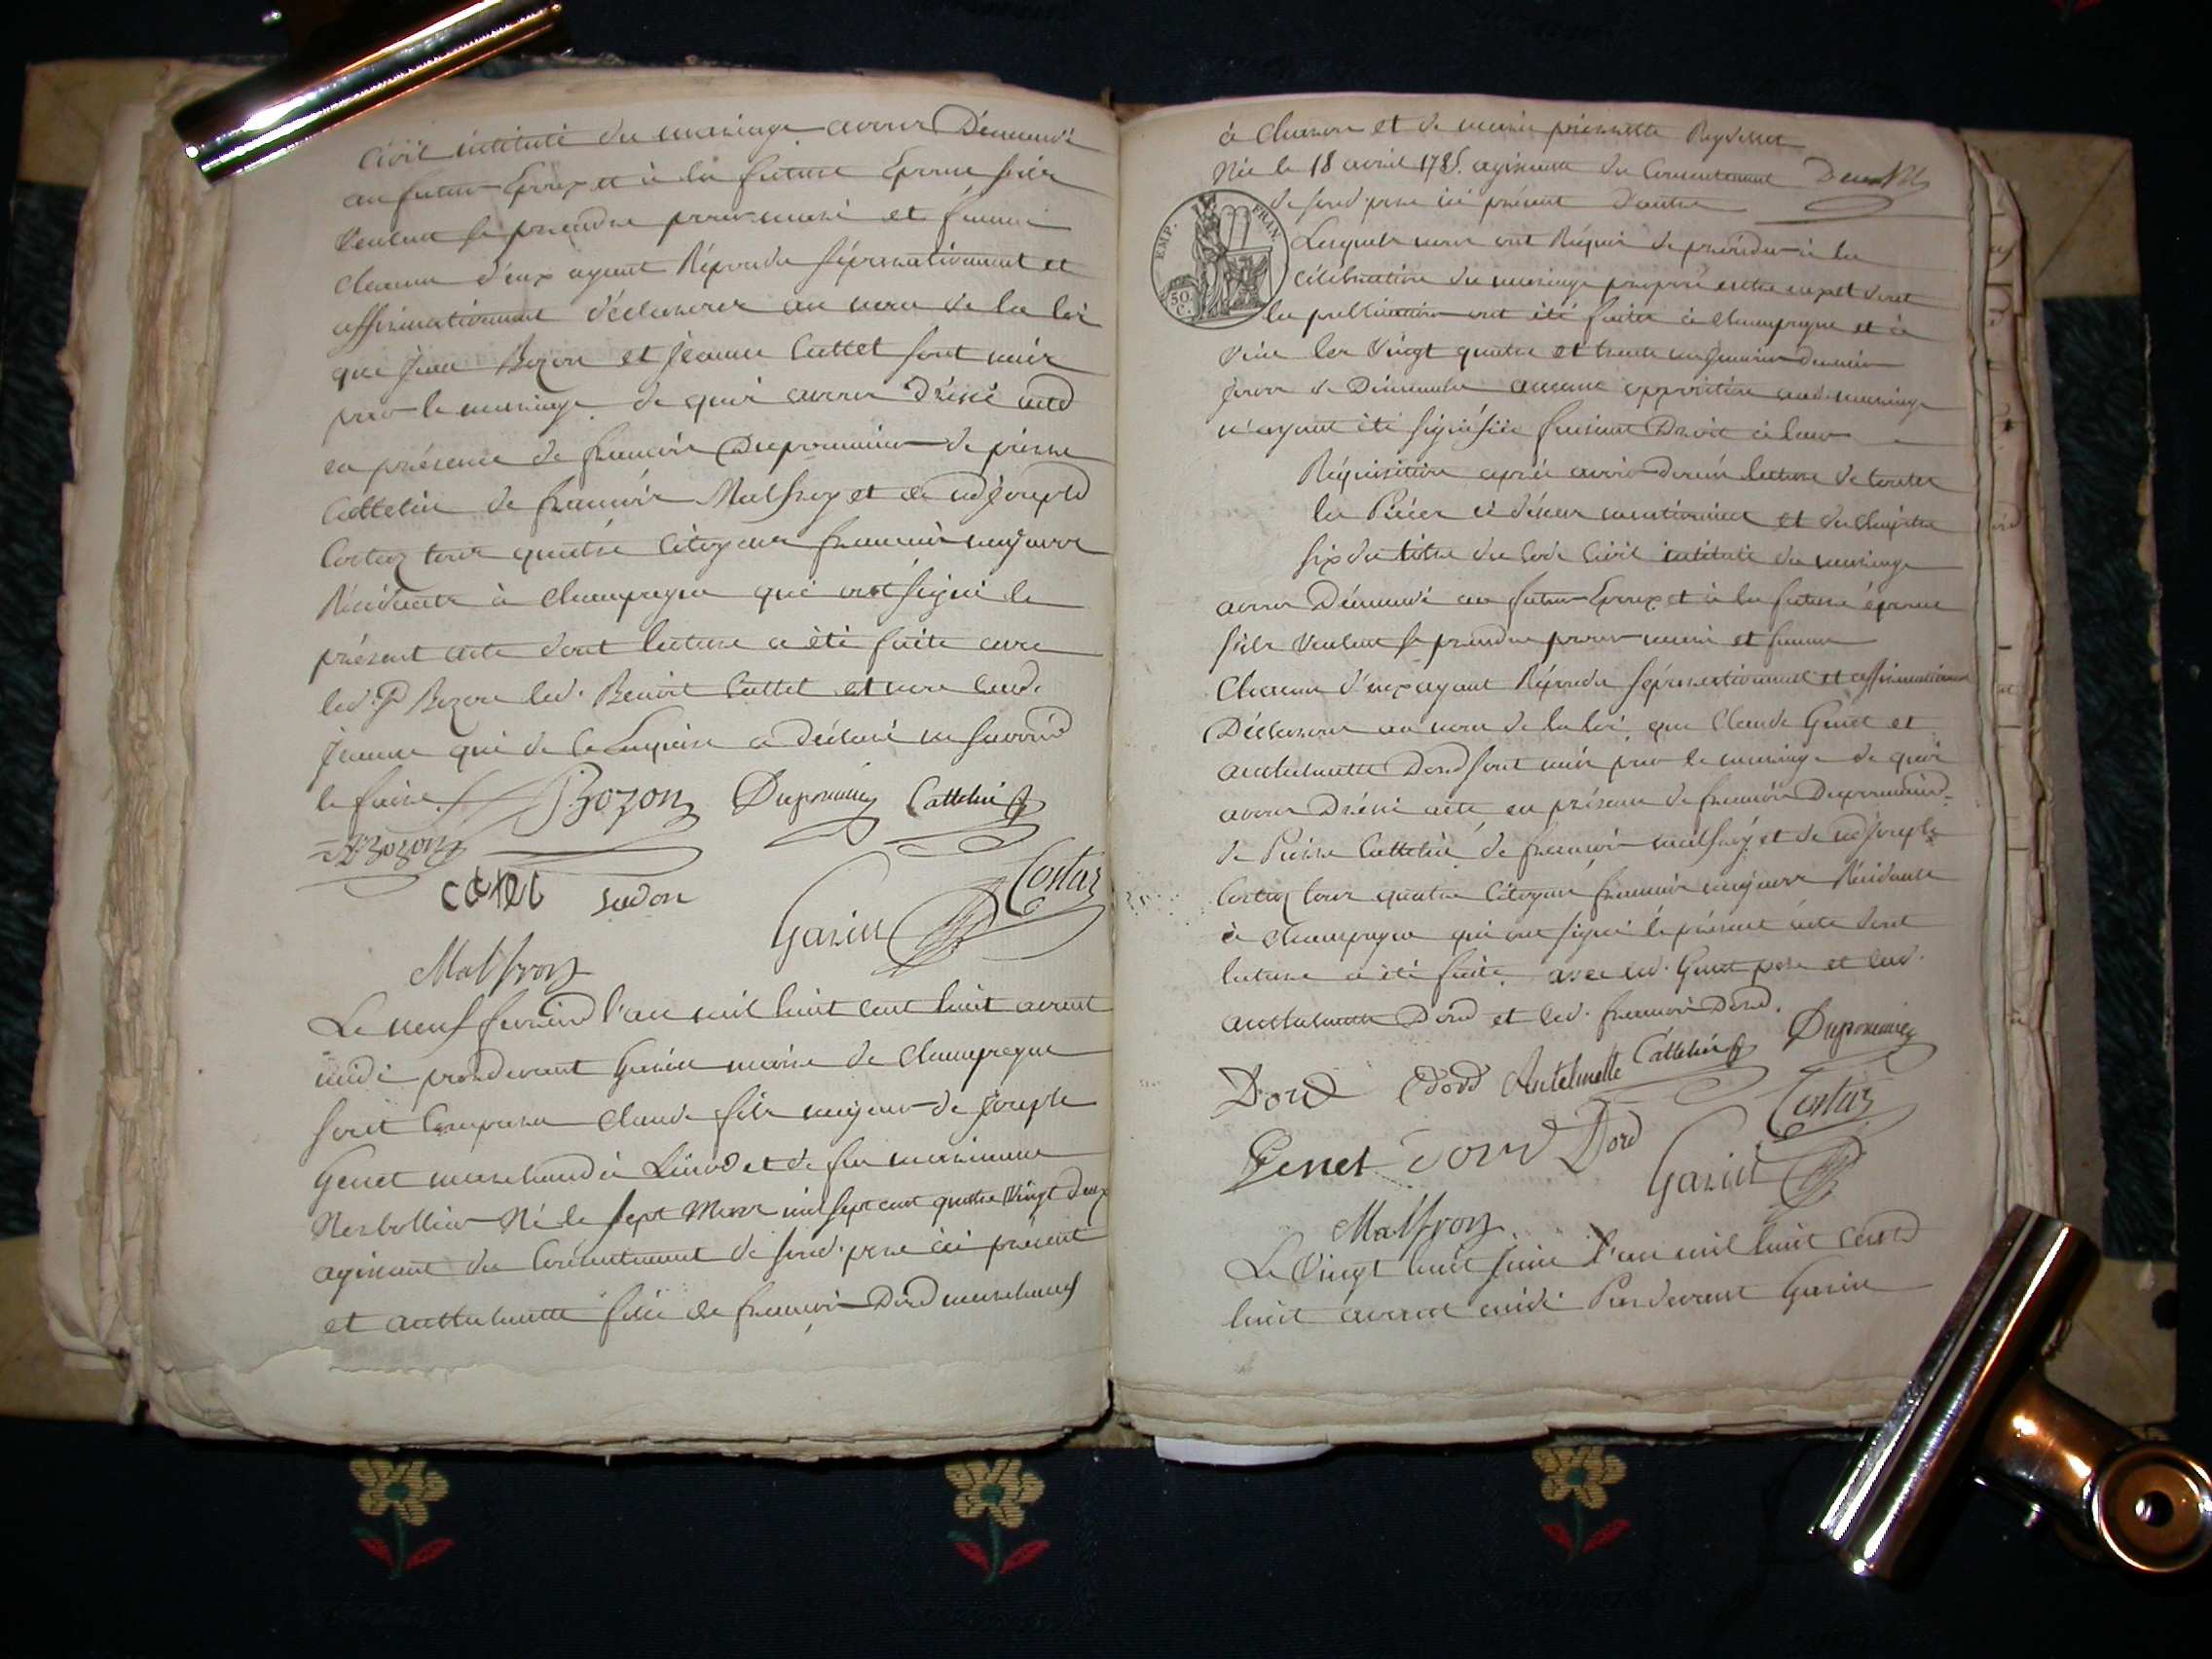 Civil intitulé du mariage avons Demandé
au futur Epoux et à la future Epouse s'ils
veulent se prendre pour mari et femme
chacun d'eux ayant Répondu séparativement et
affirmativement déclarons au nom de la loi
que jean Bozon et jeanne Cattet sont unis
par le mariage de quoi avons dréssé acte
en présence de francois Duporminier de pierre
Cattelin de francois Malfroy et de joseph
Costaz tous quatre Citoyens francais majeurs
Résidants à Champagne qui ont signé le
présent acte dont lecture a été faite avec
led. Bozon led. Benoit Cattet et non lad.
jeanne qui de ce Enquise a déclaré ne savoir
le faire. Bozon Cattelin
Bozon
catet
Costaz
Garin
Malfroy
Le neuf fevrier l'an mil huit cent huit avant
midi pardevant Garin maire de Champagne
sont Comparus Claude fils majeur de Joseph
Genet marchand à et de feu
Né le sept Mars mil sept cent quatre Vingt deux
agissant du Consentement de sond. pere ici présent
et anthelmette fille de francois Dord marchand
à et de marie pierrette
Née le 18 avril 1785. agissant du Consentement
de sond. pere ici présent d'autre
Lesquels nous ont Réquis de procéder à la
célébration du mariage projetté entre eux et dont
les publications ont été faites à champagne et à
les Vingt quatre et trente un janvier dernier
jours de Dimanche aucune opposition aud. mariage
n'ayant été signifiée faisant Droit à leur
EMP. FRAN.
50 C.
Réquisition après avoir donné lecture de toutes
les Pièces ci dessus mentionnées et du chapitre
six du titre du Code Civil intitulé du mariage
avons Demandé au futur Epoux et à la future épouse
s'ils veulent se prendre pour mari et femme
Chacun d'eux ayant Répondu séparativement et affirmativement
Déclarons au nom de la loi que Claude Genet et
anthelmette Dord sont unis par le mariage de quoi
avons Dréssé acte en présence de francois
de Pierre Cattelin de francois malfroy et de joseph
Costaz tous quatre Citoyens francais majeurs Résidants
à Champagne qui ont signé le présent acte dont
lecture a été faite avec led. Genet pere et lad.
anthelmette Dord et led. francois Dord.
Dord Dord Antelmette Cattelin
Genet Dord Dord Costaz
Garin
Malfroy
Le Vingt huit juin l'an mil huit cent
huit avant midi Pardevant Garin